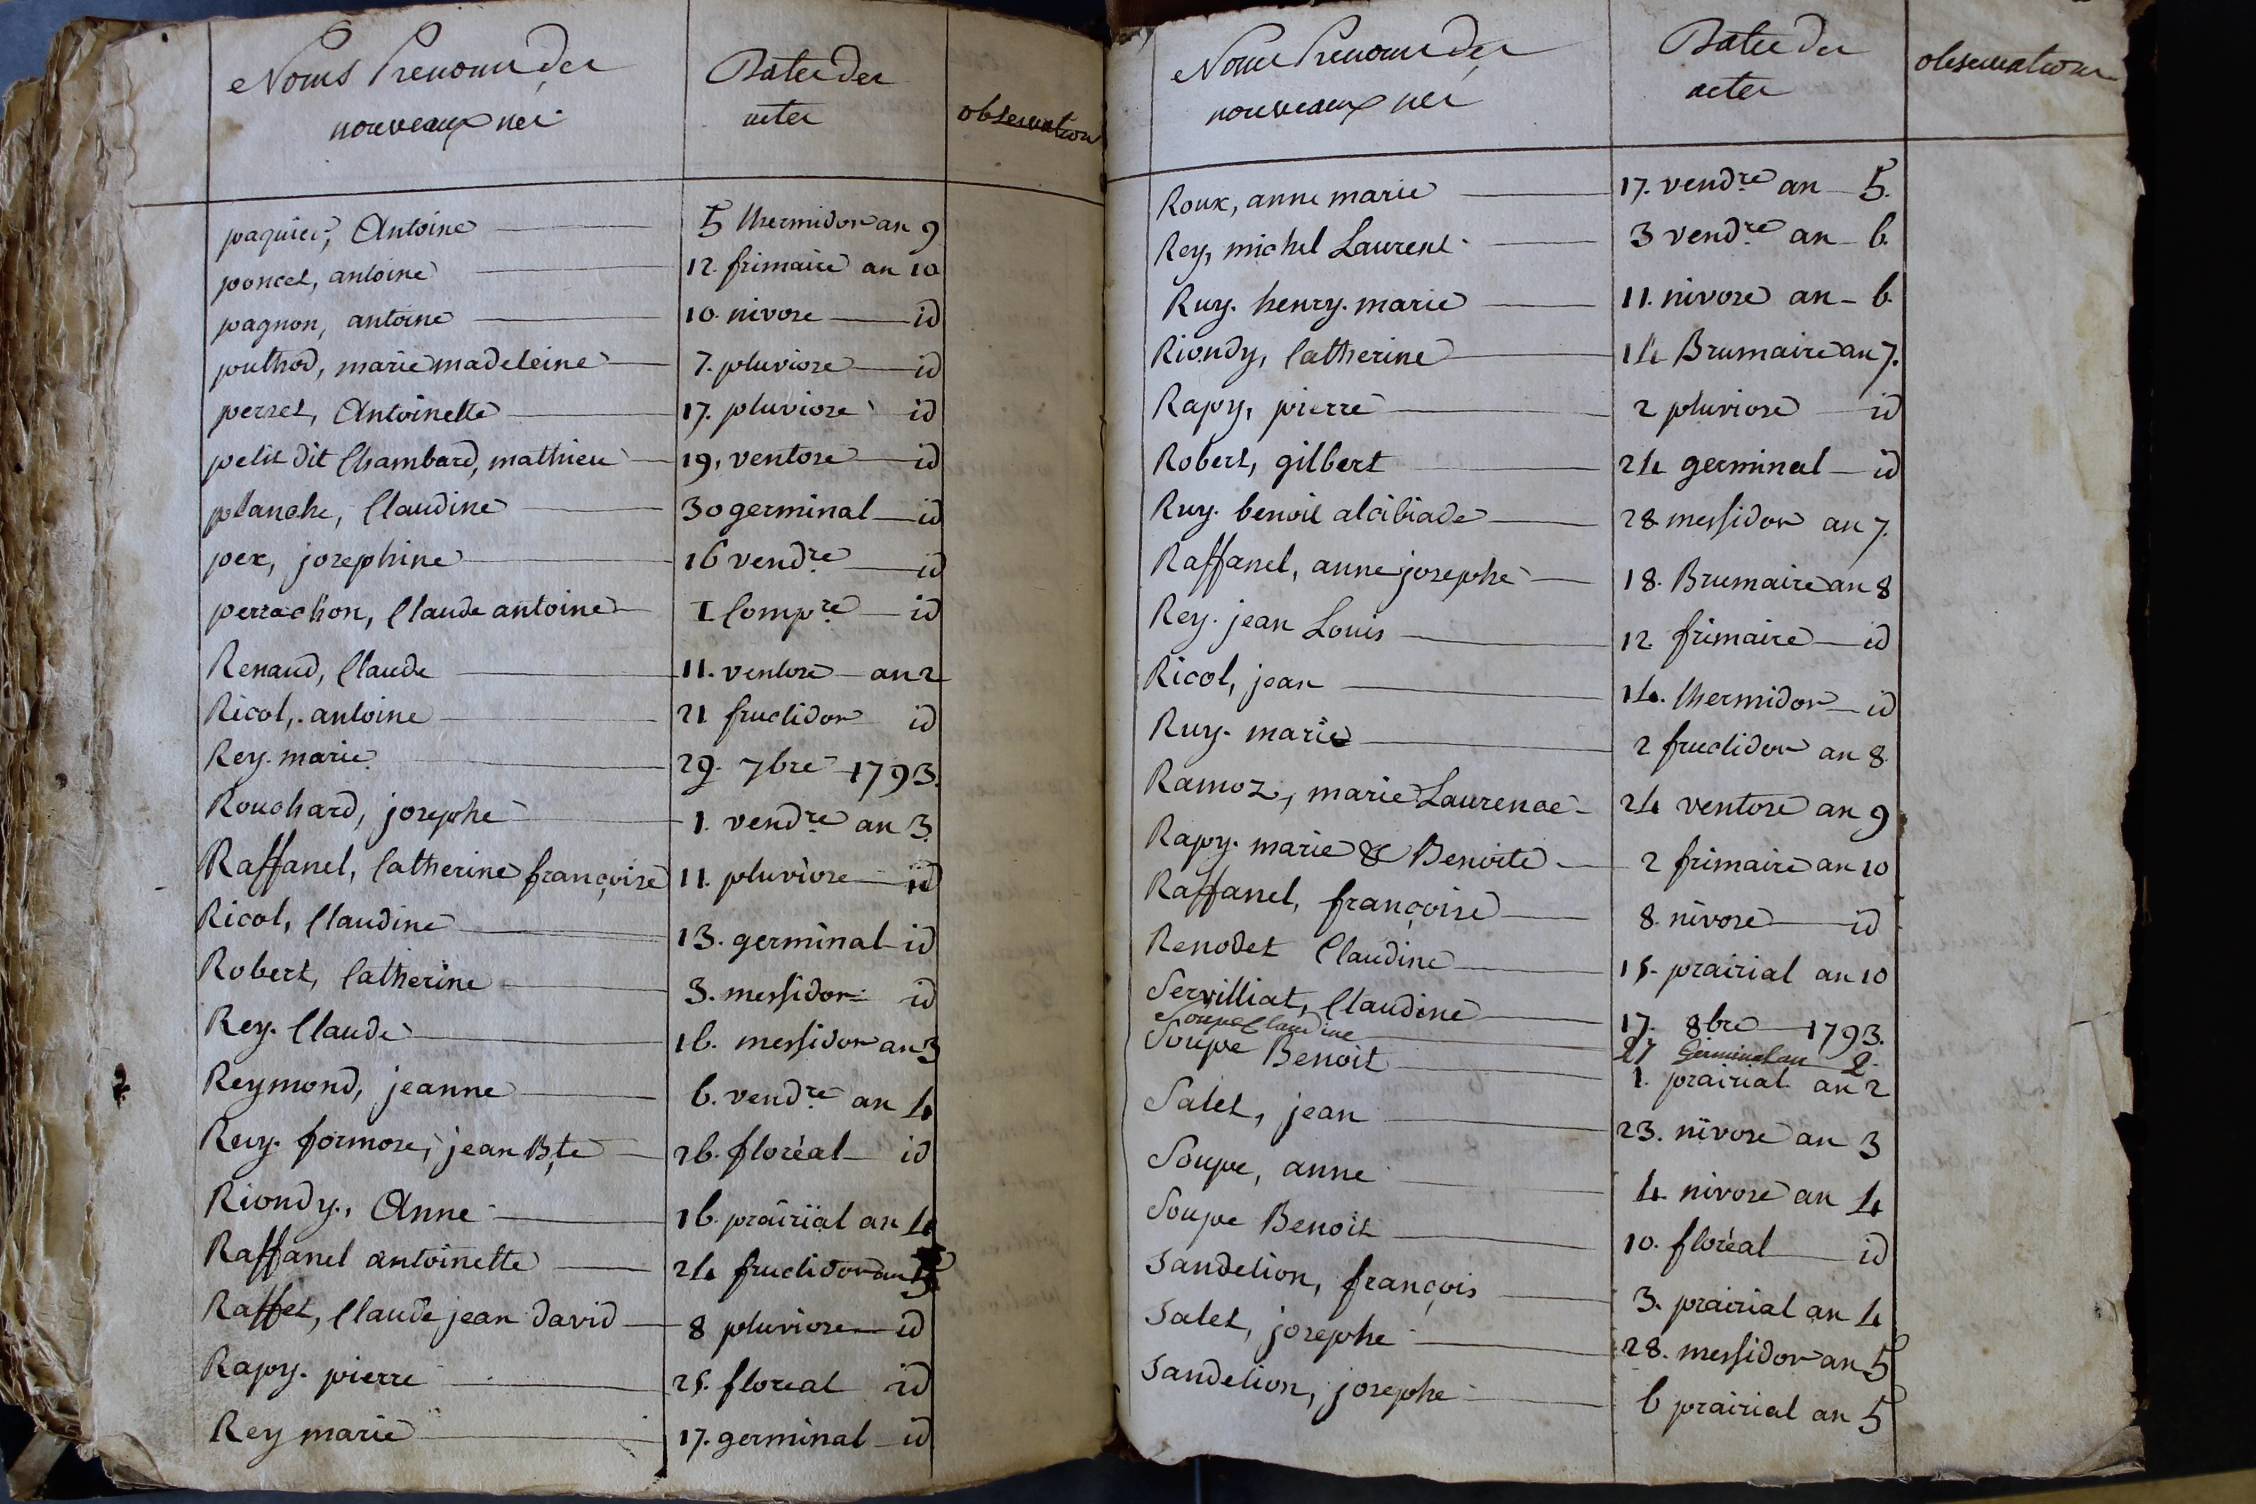 Noms Prenoms des
nouveaux nés
Dates des
actes
observations
paquier, Antoine 5 thermidor an 9
poncet, antoine 12. frimaire an 10
pagnon, antoine 10. nivose id
pouthod, marie madeleine 7. pluviose id
perret, Antoinette 17. pluviose id
petit dit Chambard, mathieu 19, ventose id
planche, Claudine 30 germinal id
pex, josephine 16 vend.re id
perrachon, Claude antoine 1 Comp.re id
Renaud, Claude 11. ventose an 2
Ricol, antoine 21 fructidor id
Rey. marie 29. 7bre 1793.
Rouchard, josephe 1. vend.re an 3.
Raffanel, Catherine françoise 11. pluviose id
Ricol, Claudine 13. germinal id
Robert, Catherine 3. messidor id
Rey. Claude 16. messidor an 3
Reymond, jeanne 6. vend.re an 4
Ruy. formose, jean Bte 26. floréal id
Riondy, Anne 16. prairial an 4
Raffanel antoinette 24 fructidor an
Raffet, Claude jean david 8 pluviose id
Rapy. pierre 25. floreal id
Rey marie 17. germinal id
Noms Prenoms des
nouveaux nés
Dates des
actes
observations
Roux, anne marie 17. vend.re an 5.
Rey, michel Laurent 3 vend.re an 6.
Ruy. henry. marie 11. nivose an 6.
Riondy, Catherine 14 Brumaire an 7.
Rapy, pierre 2 pluviose id
Robert, gilbert 24 germinal id
Ruy. benoit alcibiade 28 messidor an 7.
Raffanel, anne josephe 18. Brumaire an 8
Rey. jean Louis 12. frimaire id
Ricol, jean 14. thermidor id
Ruy. marie 2 fructidor an 8.
Ramoz, marie Laurence 24 ventose an 9
Rapy. marie & Benoite 2 frimaire an 10
Raffanel, françoise 8. nivose id
Renodet Claudine 15. prairial an 10
Servilliat, Claudine 17. 8bre 1793.
Soupe Claudine 27 Germinal an 2.
Soupe Benoit 1. prairial an 2
Salet, jean 23. nivose an 3
Soupe, anne 4. nivose an 4
Soupe Benoit 10. floréal id
Sandelion, françois 3. prairial an 4
Salet, josephe 28. messidor an 5
Sandelion, josephe 6 prairial an 5